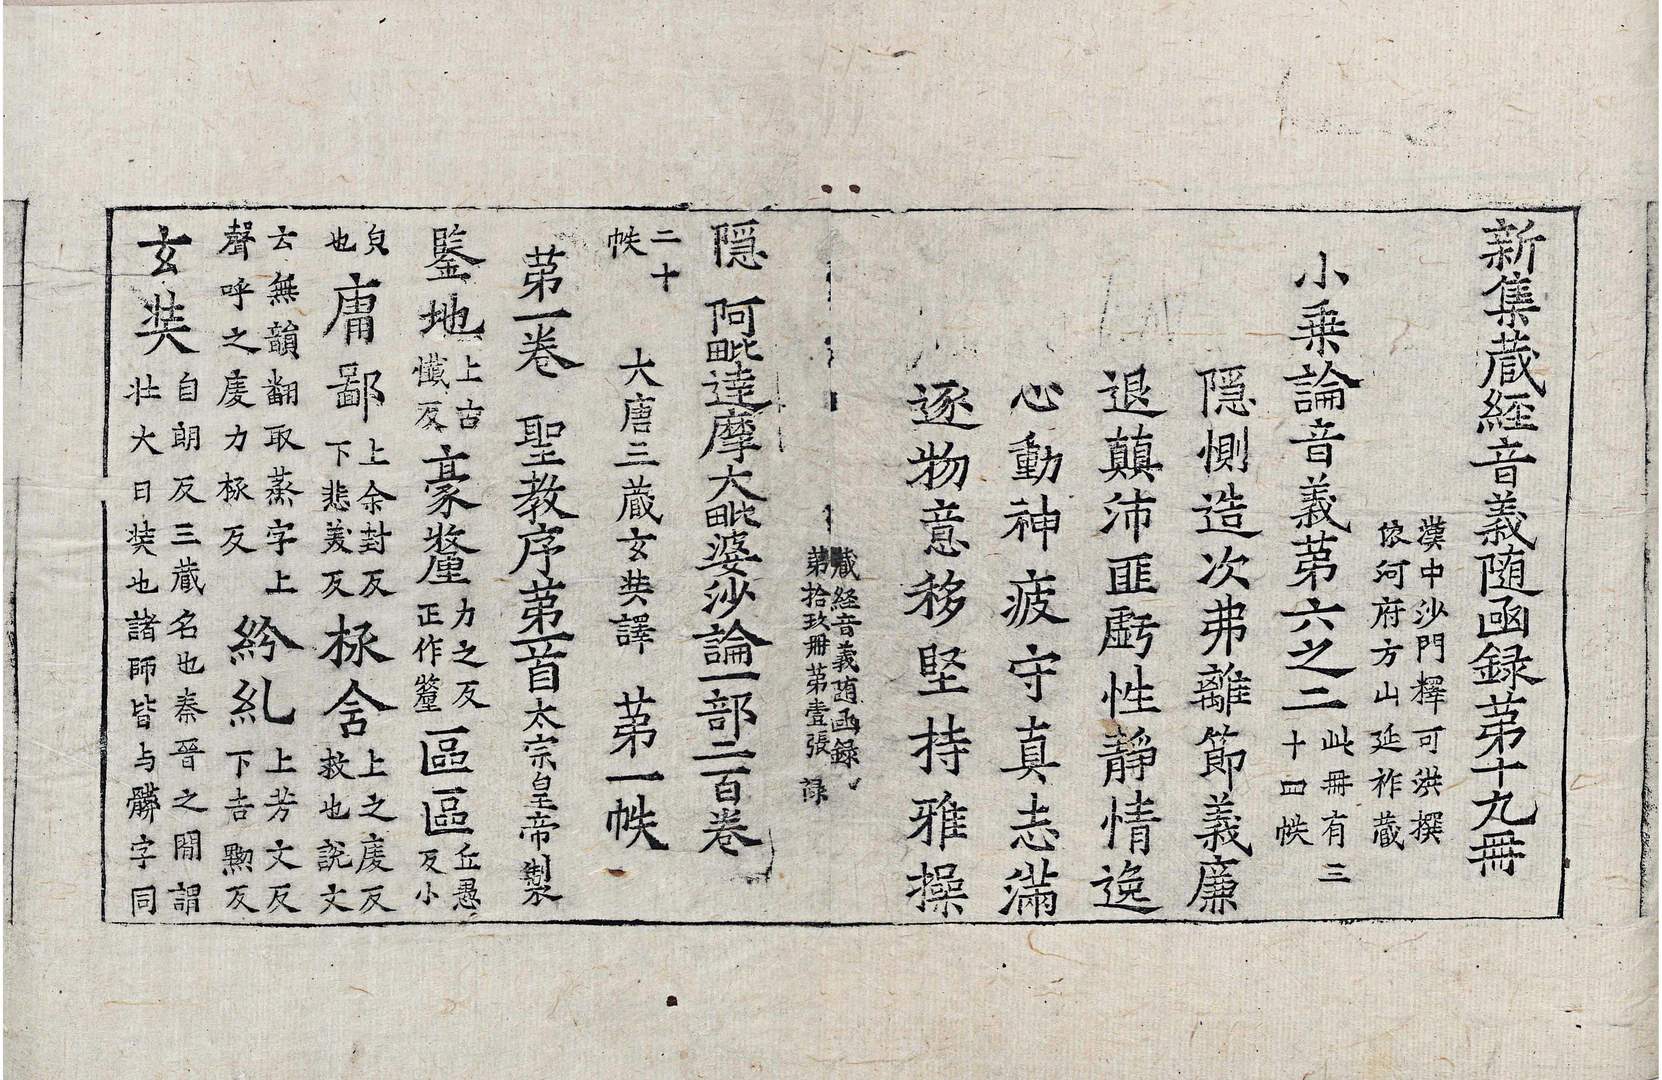 新集蔵経音義随函録第十九冊
漢中沙門釋可洪撰
依河府方山延祚蔵
小乗論音義第六之二
此冊有三
十四帙
隠惻造次弗離節義廉
退顛沛匪虧性靜情逸
心動神疲守真志滿
逐物意移堅持雅操
蔵経音義随函録
第拾玖冊第壹張 禄
隠 阿毗達摩大毗婆沙論一部二百巻
二十
帙
大唐三蔵玄奘譯 第一帙
第一巻 聖教序第一首太宗皇帝製
鑒地
上古
懺反
豪𨤲
力之反
正作釐
區區
丘愚
反小
皃
也
庸鄙
上余封反
下悲美反
拯舍
上之庱反
救也説文
云無韻翻取蒸字上
聲呼之庱力拯反
紛糺
上芳文反
下吉黝反
玄奘
自朗反三蔵名也秦晉之間謂
壮大曰奘也諸師皆与髒字同